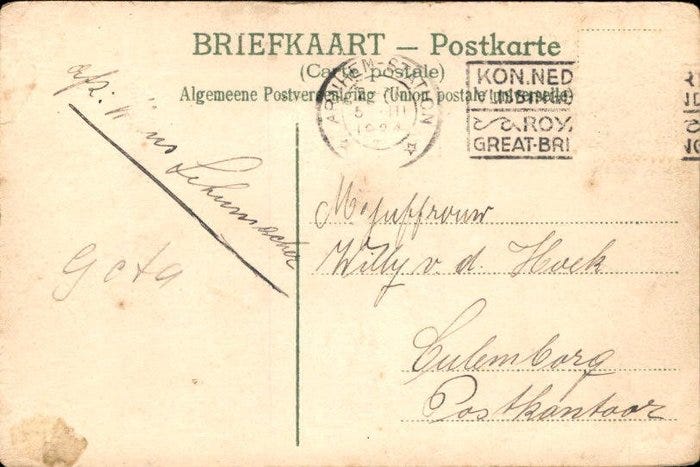 BRIEFKAART — Postkarte
(Carte postale)
Algemeene Postvereeniging (Union postale universelle)
ARNHEM-STATION
5 III
KON.NED
VLISSINGE
ROYA
GREAT-BRI
afz:
Schumacher
Mejuffrouw
Willy v. d. Hoek
Culemborg
Postkantoor